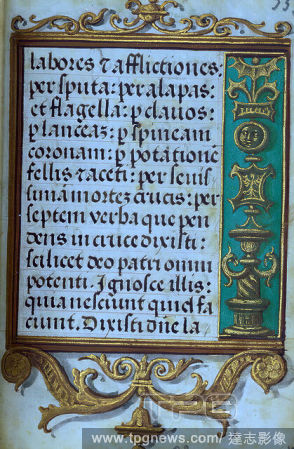 labores ⁊ afflictiones:
per sputa: per alapas:
et flagella: p̱ clauos:
p̱ lanceaꝫ: p̱ spineam
coronam: p̱ potationē
fellis ⁊ aceti: per seuis
simā mortēꝫ crucis: per
septem verba que pen
dens in cruce dixisti:
scilicet deo patri omni
potenti. Ignosce illis:
quia nesciunt quid fa
ciunt. Dixisti dn̄e la
TPG
www.tpgnews.com/達志影像